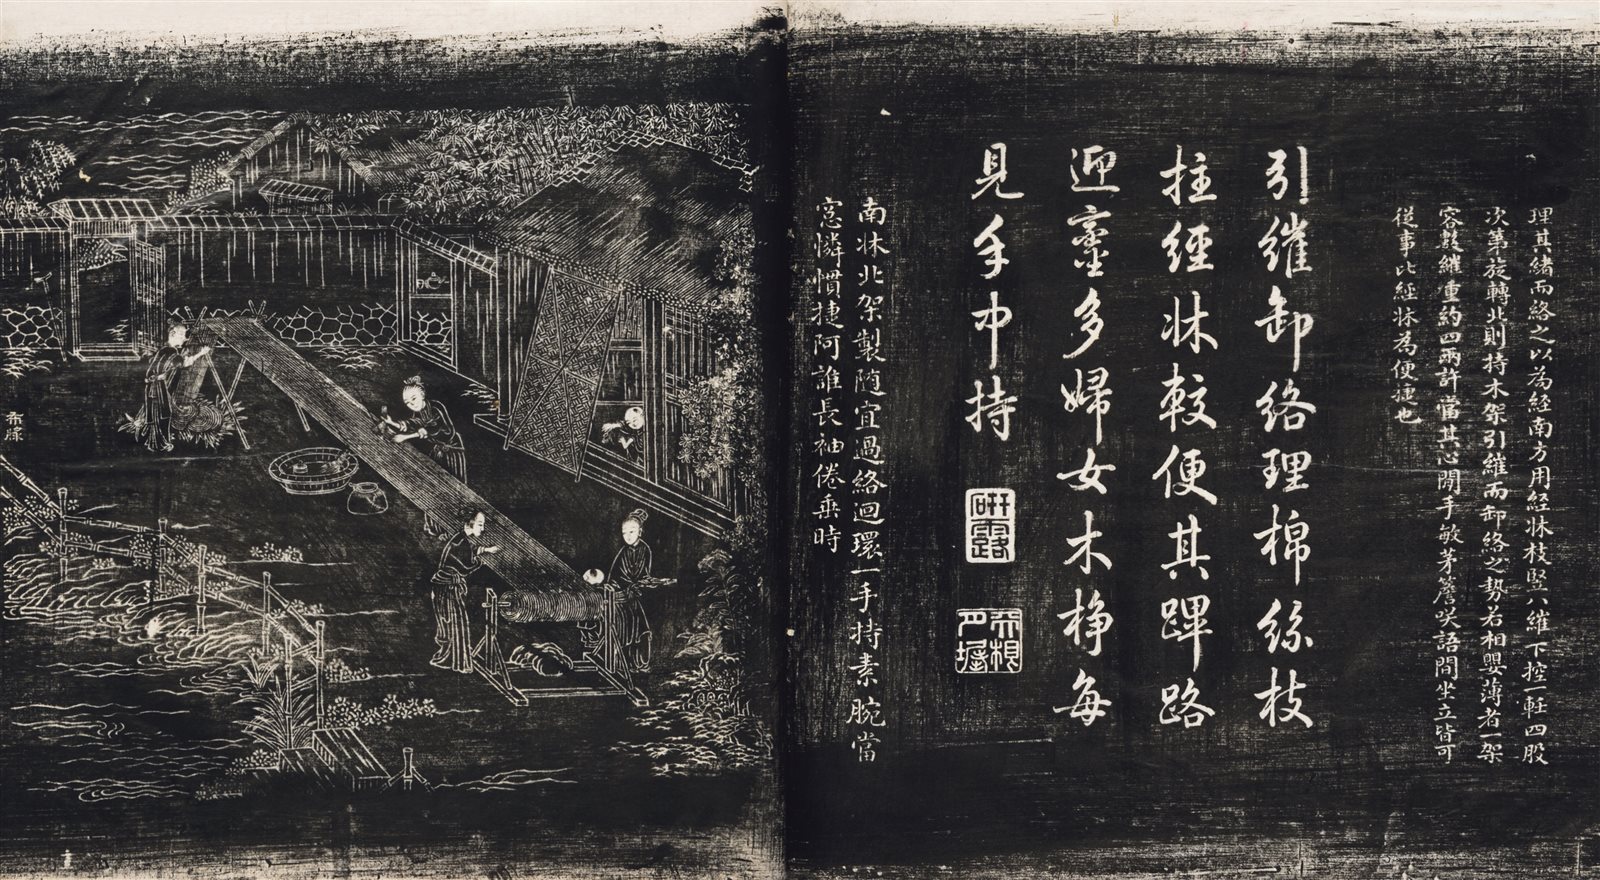 理其緒而絡之以為經南方用經牀枝竪八繀下控一軠四股
次第旋轉北則持木架引繀而卸絡之勢若相嬰薄者一架
容數繀重約四兩許當其心閒手敏茅簷笑語間坐立皆可
從事比經牀為便捷也
引繀卸絡理棉絲枝
拄經牀較便其蹕路
迎鑾多婦女木棦每
見手中持
研露
南牀北架製隨宜過絡迴環一手持素腕當
窓憐慣捷阿誰長袖倦垂時
布漿